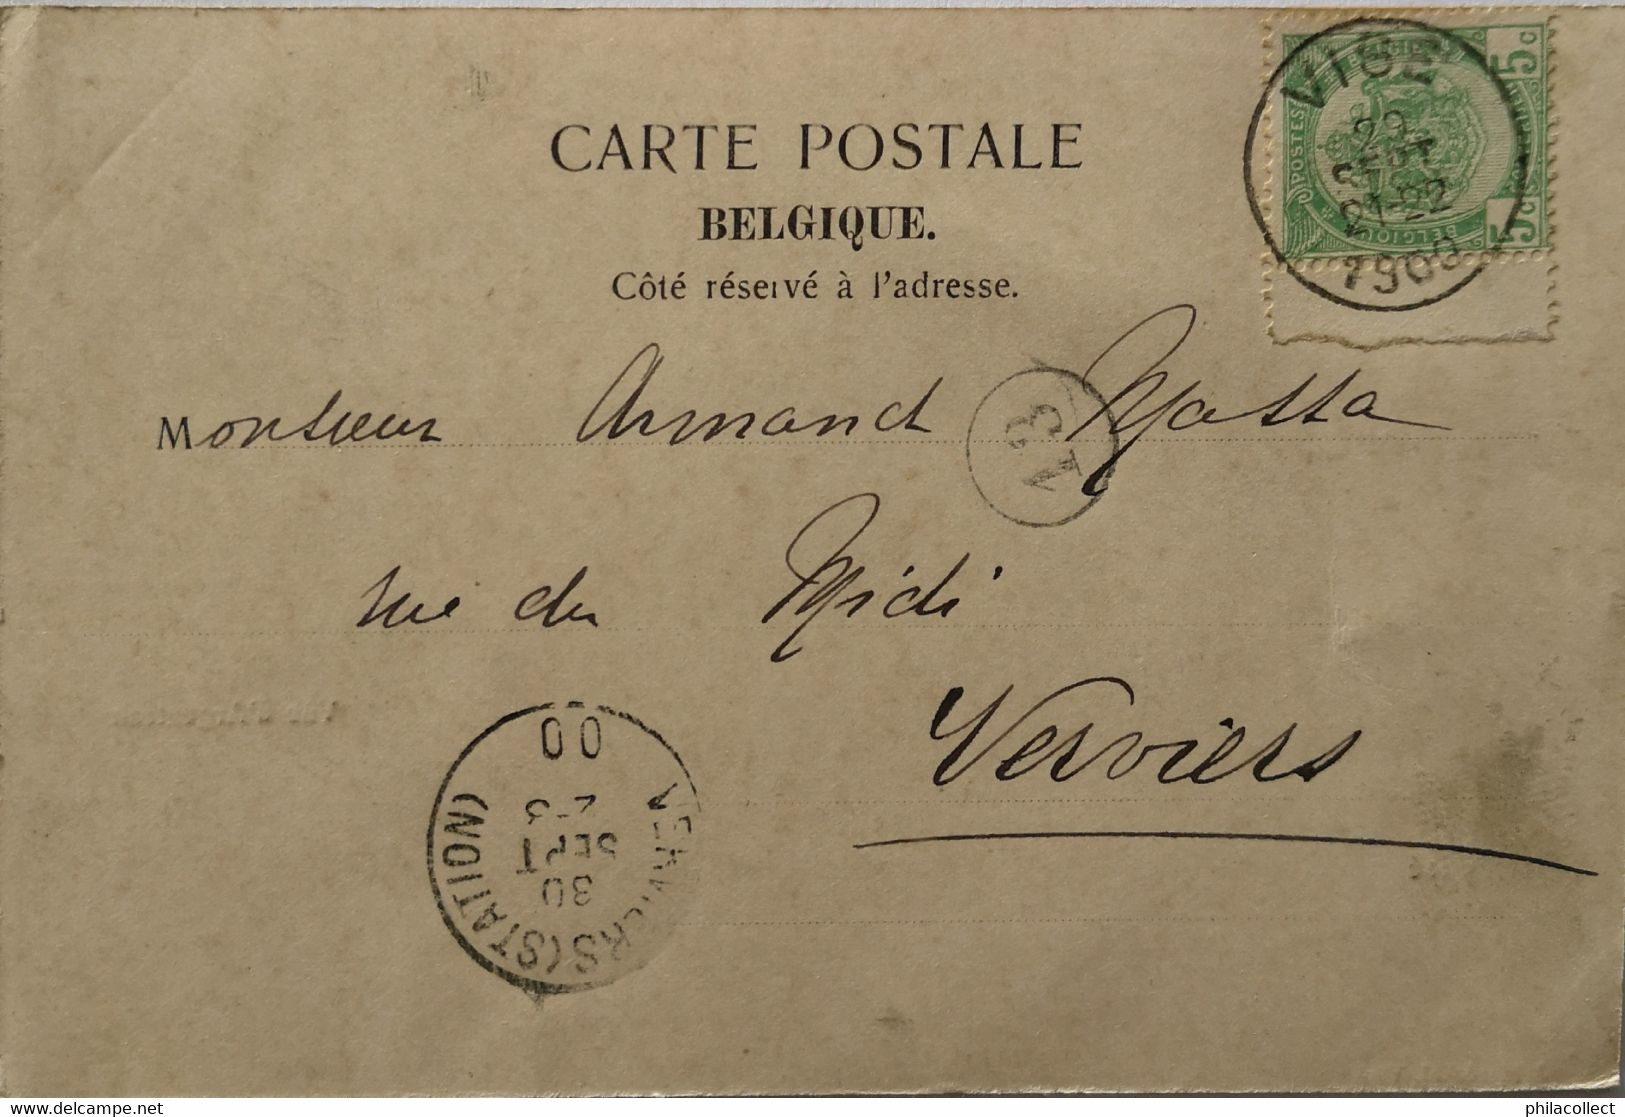 CARTE POSTALE
BELGIQUE.
Côté réservé à l'adresse.
BELGIË
POSTES
BELGIQUE
5c
5c
VISÉ
29
SEPT
21-22
1900
Monsieur Armand Massa
13
rue du Midi
Verviers
VERVIERS (STATION)
30
SEPT
2-3
00
www.delcampe.net
philacollect